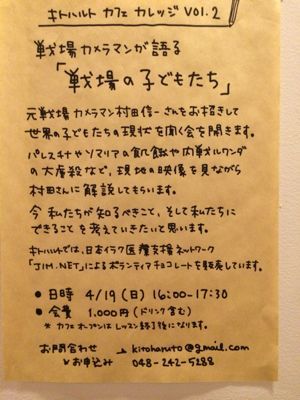 キトハルト カフェ カレッジ VOl.2
戦場カメラマンが語る
「戦場の子どもたち」
元戦場カメラマン村田信一さんをお招きして
世界の子どもたちの現状を聞く会を開きます。
パレスチナやソマリアの飢餓や内戦ルワンダ
の大虐殺など、現地の映像を見ながら
村田さんに解説してもらいます。
今私たちが知るべきこと、そして私たちに
できることを考えていきたいと思います。
キトハルトでは、日本イラク医療支援ネットワーク
「JIM.NET」によるボランティアチョコレートを販売しています。
● 日時 4/19(日) 16:00-17:30
● 会費 1,000円(ドリンク含む)
* カフェオープンはレッスン終了後になります。
お問合わせ kitoharuto@gmail.com
お申込み 048-242-5288